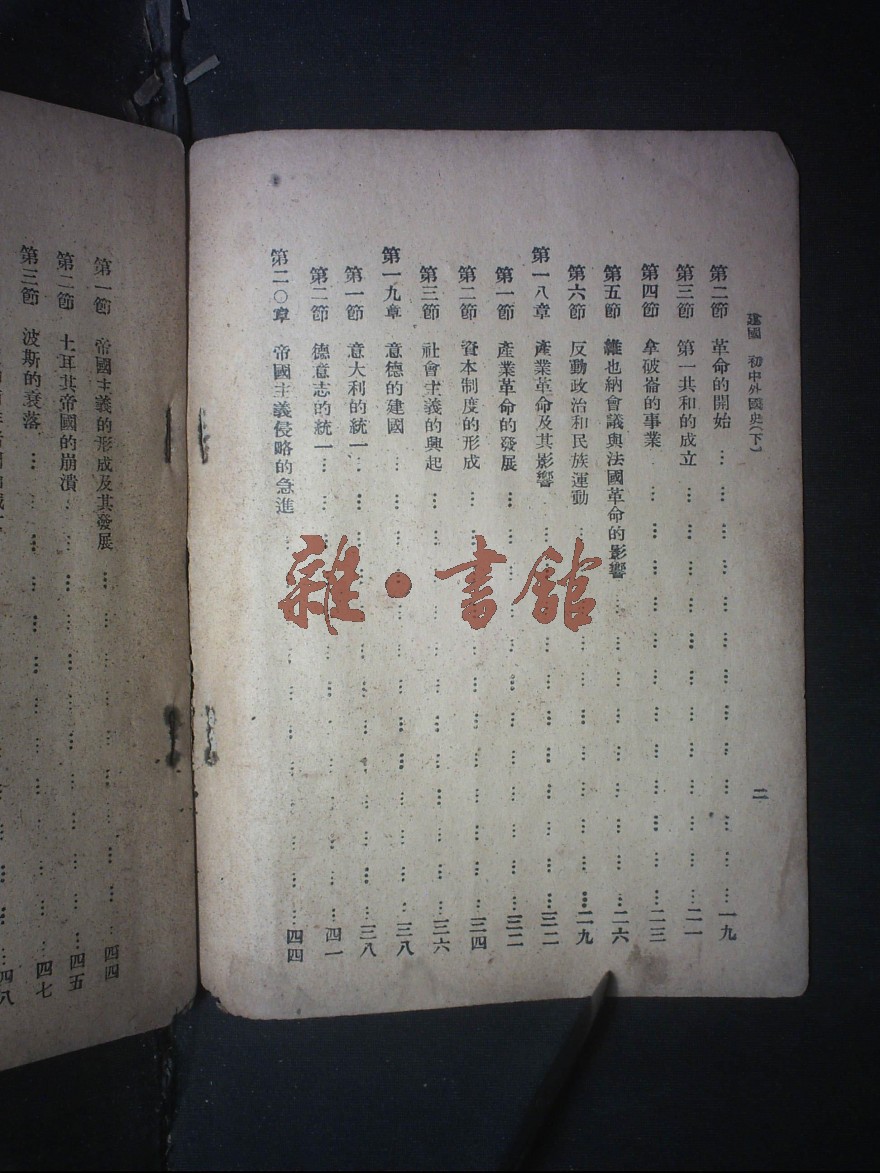 建國 初中外國史(下)
二
第二節 革命的開始 … … … … … … … … … … … … 一九
第三節 第一共和的成立 … … … … … … … … … … … 二一
第四節 拿破崙的事業 … … … … … … … … … … … 二三
第五節 維也納會議與法國革命的影響 … … … … … … … … 二六
第六節 反動政治和民族運動 … … … … … … … … … … 二九
第一八章 產業革命及其影響 … … … … … … … … … … 三二
第一節 產業革命的發展 … … … … … … … … … … … 三二
第二節 資本制度的形成 … … … … … … … … … … … 三四
第三節 社會主義的興起 … … … … … … … … … … … 三六
第一九章 意德的建國 … … … … … … … … … … … 三八
第一節 意大利的統一 … … … … … … … … … … … 三八
第二節 德意志的統一 … … … … … … … … … … … 四一
第二〇章 帝國主義侵略的急進 … … … … … … … … … 四四
第一節 帝國主義的形成及其發展 … … … … … … … … … 四四
第二節 土耳其帝國的崩潰 … … … … … … … … … … 四五
第三節 波斯的衰落 … … … … … … … … … … … … 四七
四八
雜·書館